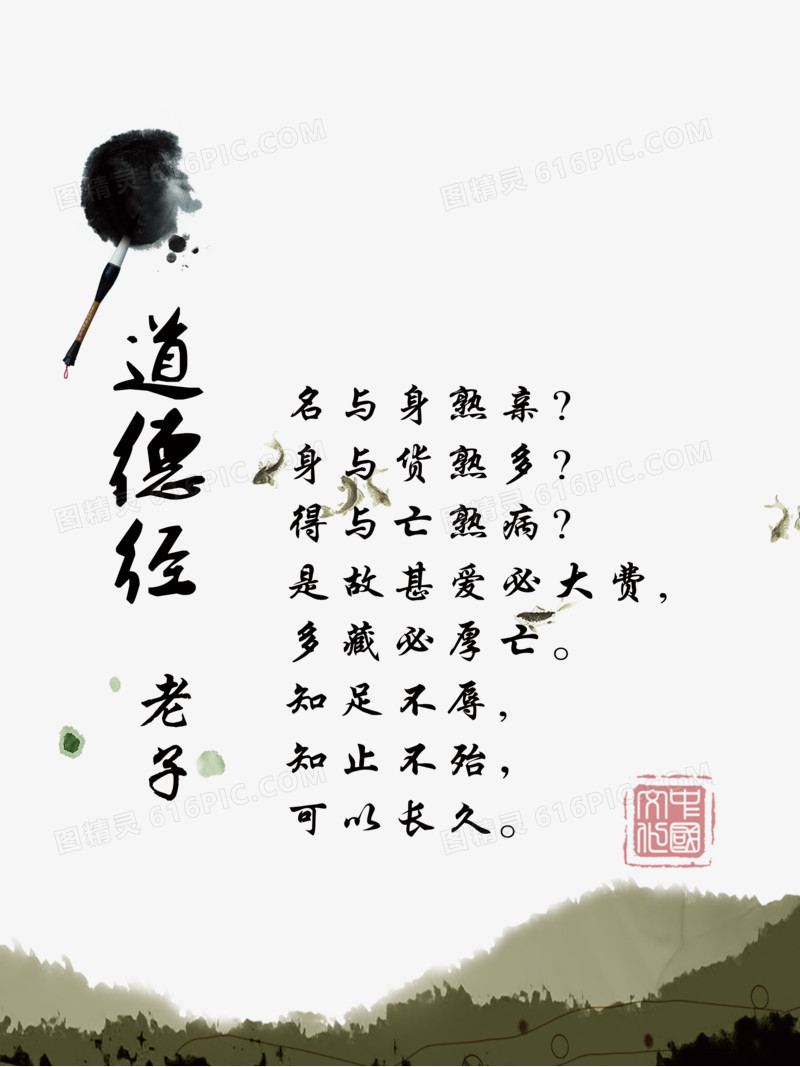 道德经
老子
名与身熟亲？
身与货熟多？
得与亡熟病？
是故甚爱必大费，
多藏必厚亡。
知足不辱，
知止不殆，
可以长久。
中國文化
图精灵 616PIC.COM
图精灵 616PIC.COM
图精灵 616PIC.COM
图精灵 616PIC.COM
图精灵 616PIC.COM
图精灵 616PIC.COM